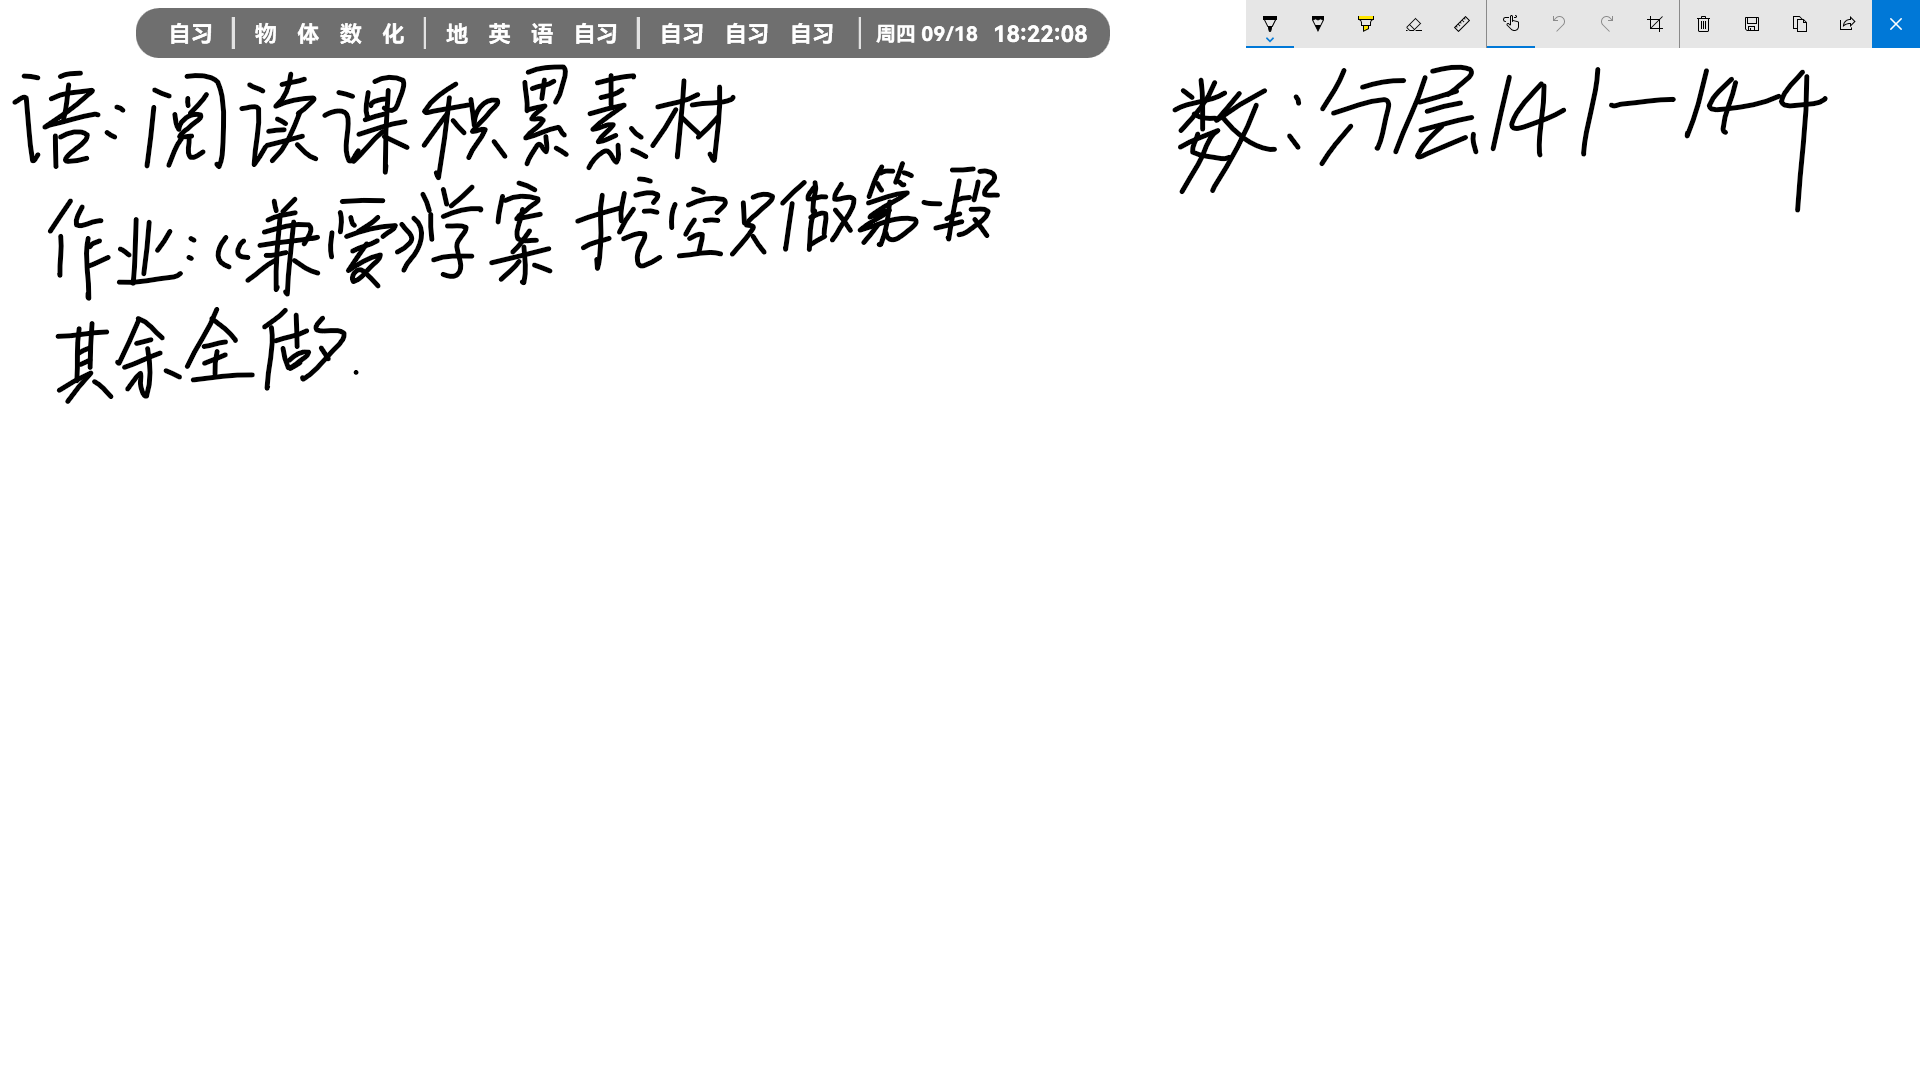 自习 | 物 体 数 化 | 地 英 语 自习 | 自习 自习 自习 | 周四 09/18 18:22:08
语:阅读课积累素材
作业:《兼爱》学案 挖空只做第一段
其余全做.
数:分层141-144